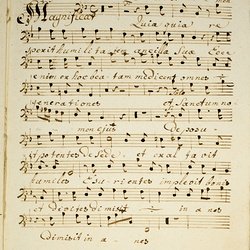 Magnificat Quia quia re
spexit humilitatem ancilla Suae Ecce
enim ex hoc beatam me dicent omnes
generationes et Sanctum no
men ejus Deposu
it potentes de Sede et exaltavit
humiles Esurientes implevit bonis
et divites dimisit in anes
Dimisit in anes